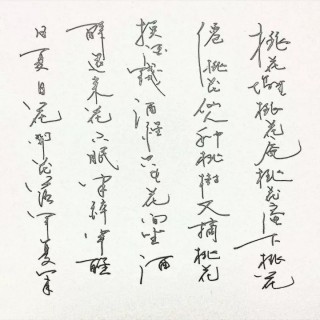 桃花塢裡桃花庵桃花庵下桃花
仙桃花仙人种桃樹又摘桃花
換酒錢酒醒只花間坐酒
醉還來花下眠半醉半醒
日复日花開花落年复年